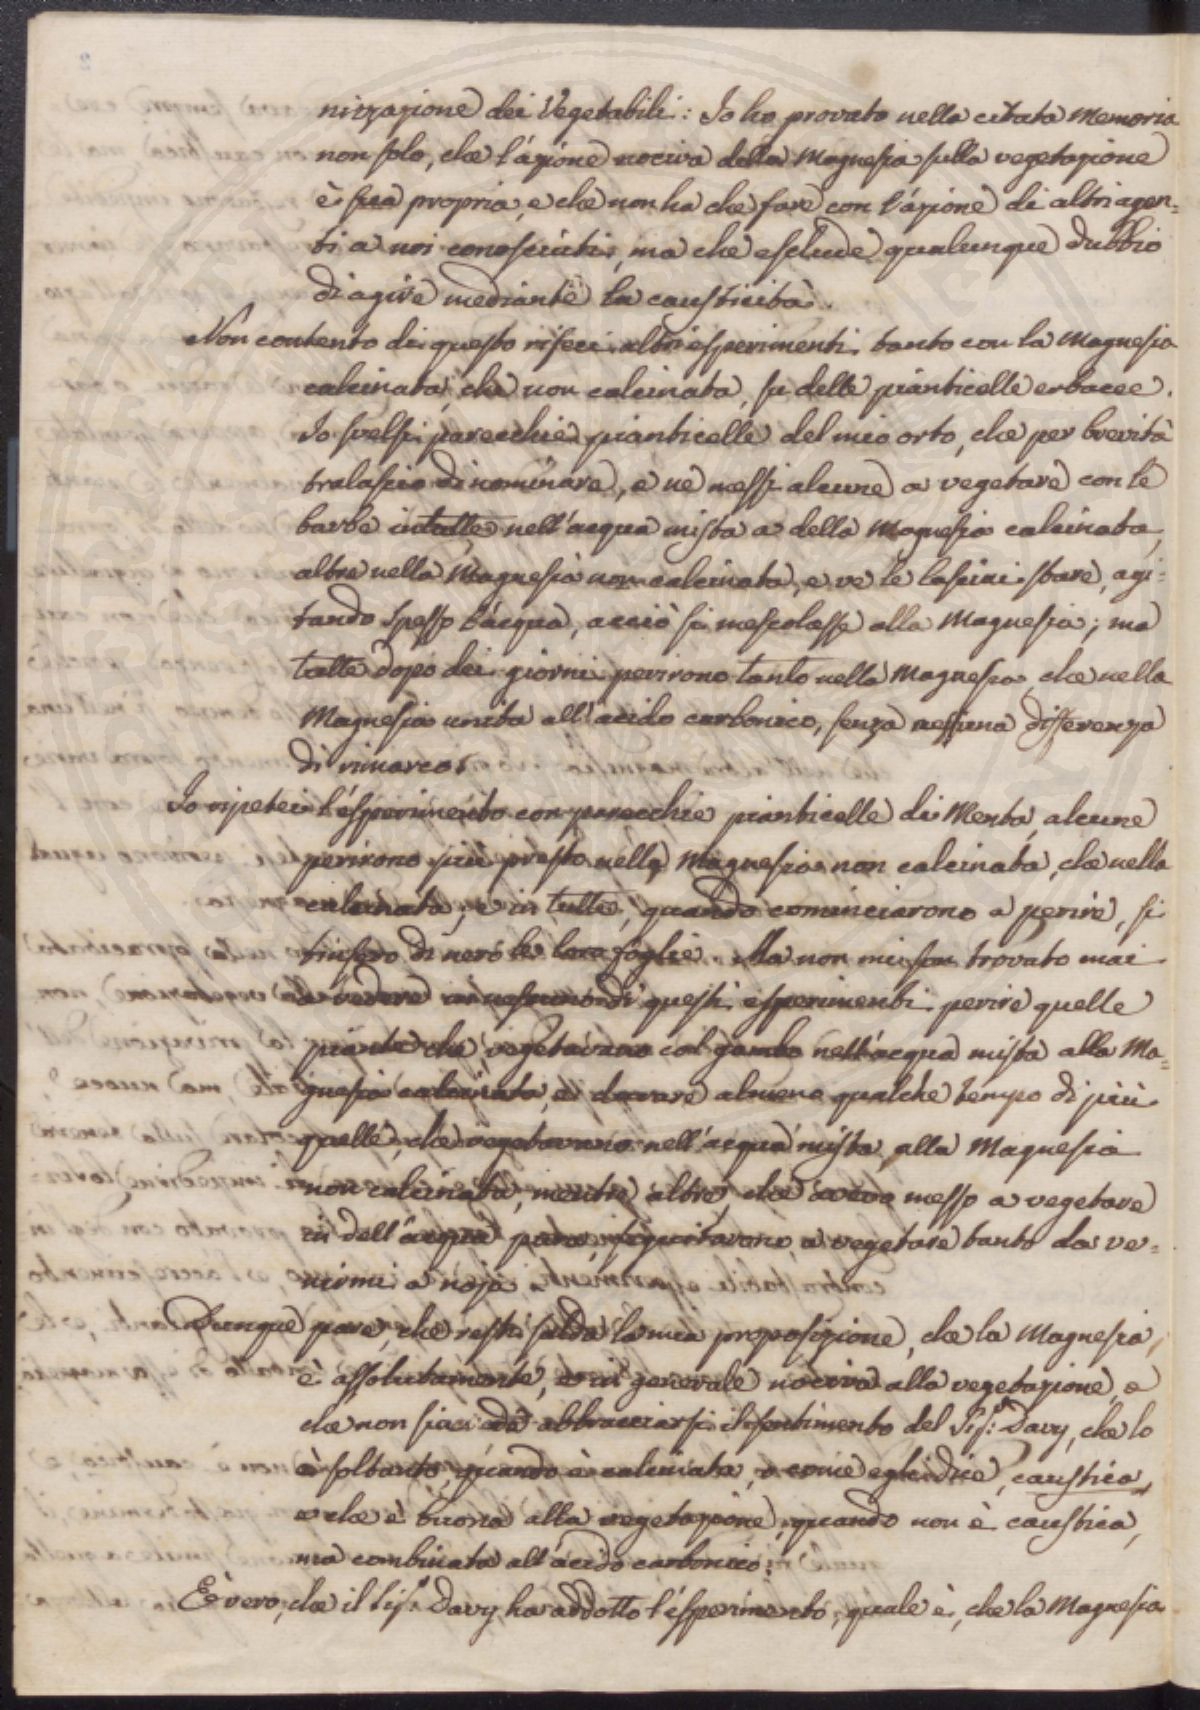 nizzazione dei Vegetabili: Io ho provato nella citata Memoria
non solo, che l'azione nociva della Magnesia sulla vegetazione
è sua propria, e che non ha che fare con l'azione di altri agen=
ti a noi conosciuti, ma che esclude qualunque dubbio
di agire mediante la causticità.
Non contento di questo rifeci altri esperimenti tanto con la Magnesia
calcinata, che non calcinata, su delle pianticelle erbacee.
Io svelsi parecchie pianticelle del mio orto, che per brevità
tralascio di nominare, e ne messi alcune a vegetare con le
barbe intatte nell'acqua mista a della Magnesia calcinata,
altre nella Magnesia non calcinata, e ve le lasciai stare, agi=
tando spesso l'acqua, acciò si mescolasse alla Magnesia; ma
tutte dopo dei giorni perirono tanto nella Magnesia, che nella
Magnesia unita all'acido carbonico, senza nessuna differenza
di rimarco.
Io ripetei l'esperimento con parecchie pianticelle di Menta, alcune
perirono più presto nella Magnesia non calcinata, che nella
calcinata, e in tutte, quando cominciarono a perire, si
tinsero di nero le loro foglie. Ma non mi son trovato mai
a vedere in nessuno di questi esperimenti perire quelle
piante che vegetavano col gambo nell'acqua mista alla Ma=
gnesia calcinata, e durare almeno qualche tempo di più
quelle, che vegetavano nell'acqua mista alla Magnesia
non calcinata, mentre altre che aveva messo a vegetare
in dell'acqua pura, seguitavano a vegetare tanto da ve=
nirmi a noja.
Dunque pare, che resti salda la mia proposizione, che la Magnesia,
è assolutamente, e in generale nociva alla vegetazione, e
che non sia da abbracciarsi il sentimento del Sig.r Davy, che lo
è soltanto, quando è calcinata, o come egli dice, caustica,
e che è buona alla vegetazione, quando non è caustica,
ma combinata all'acido carbonico.
È vero, che il Sig.r Davy ha addotto l'esperimento, quale è, che la Magnesia